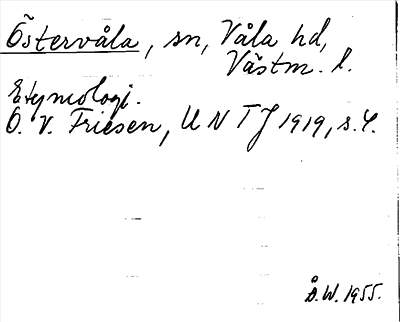 Östervåla, sn, Våla hd,
Västm. l.
Etymologi.
O. v. Friesen, UNTJ 1919, s. 4.
Å.W. 1955.